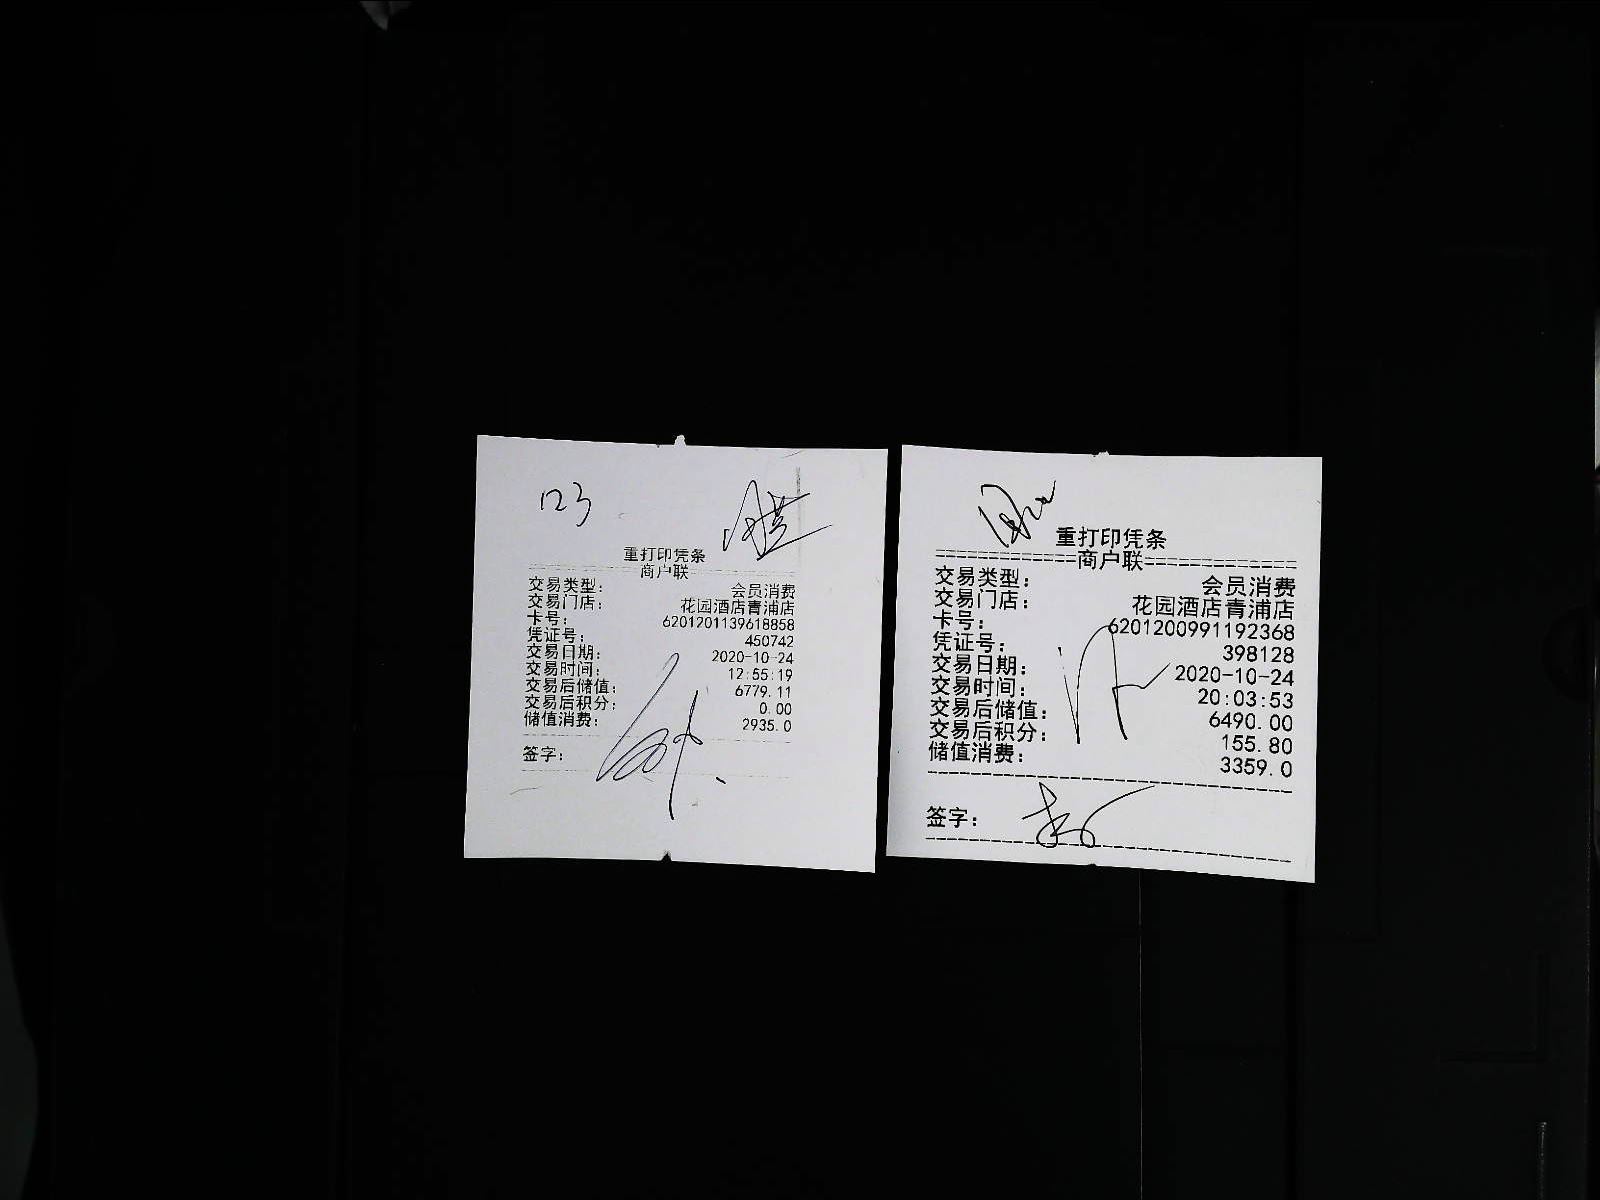 123
重打印凭条
商户联
交易类型： 会员消费
交易门店： 花园酒店青浦店
卡号： 6201201139618858
凭证号： 450742
交易日期： 2020-10-24
交易时间： 12:55:19
交易后储值： 6779.11
交易后积分： 0.00
储值消费： 2935.0
签字：
重打印凭条
============商户联=============
交易类型： 会员消费
交易门店： 花园酒店青浦店
卡号： 6201200991192368
凭证号： 398128
交易日期： 2020-10-24
交易时间： 20:03:53
交易后储值： 6490.00
交易后积分： 155.80
储值消费： 3359.0
签字：